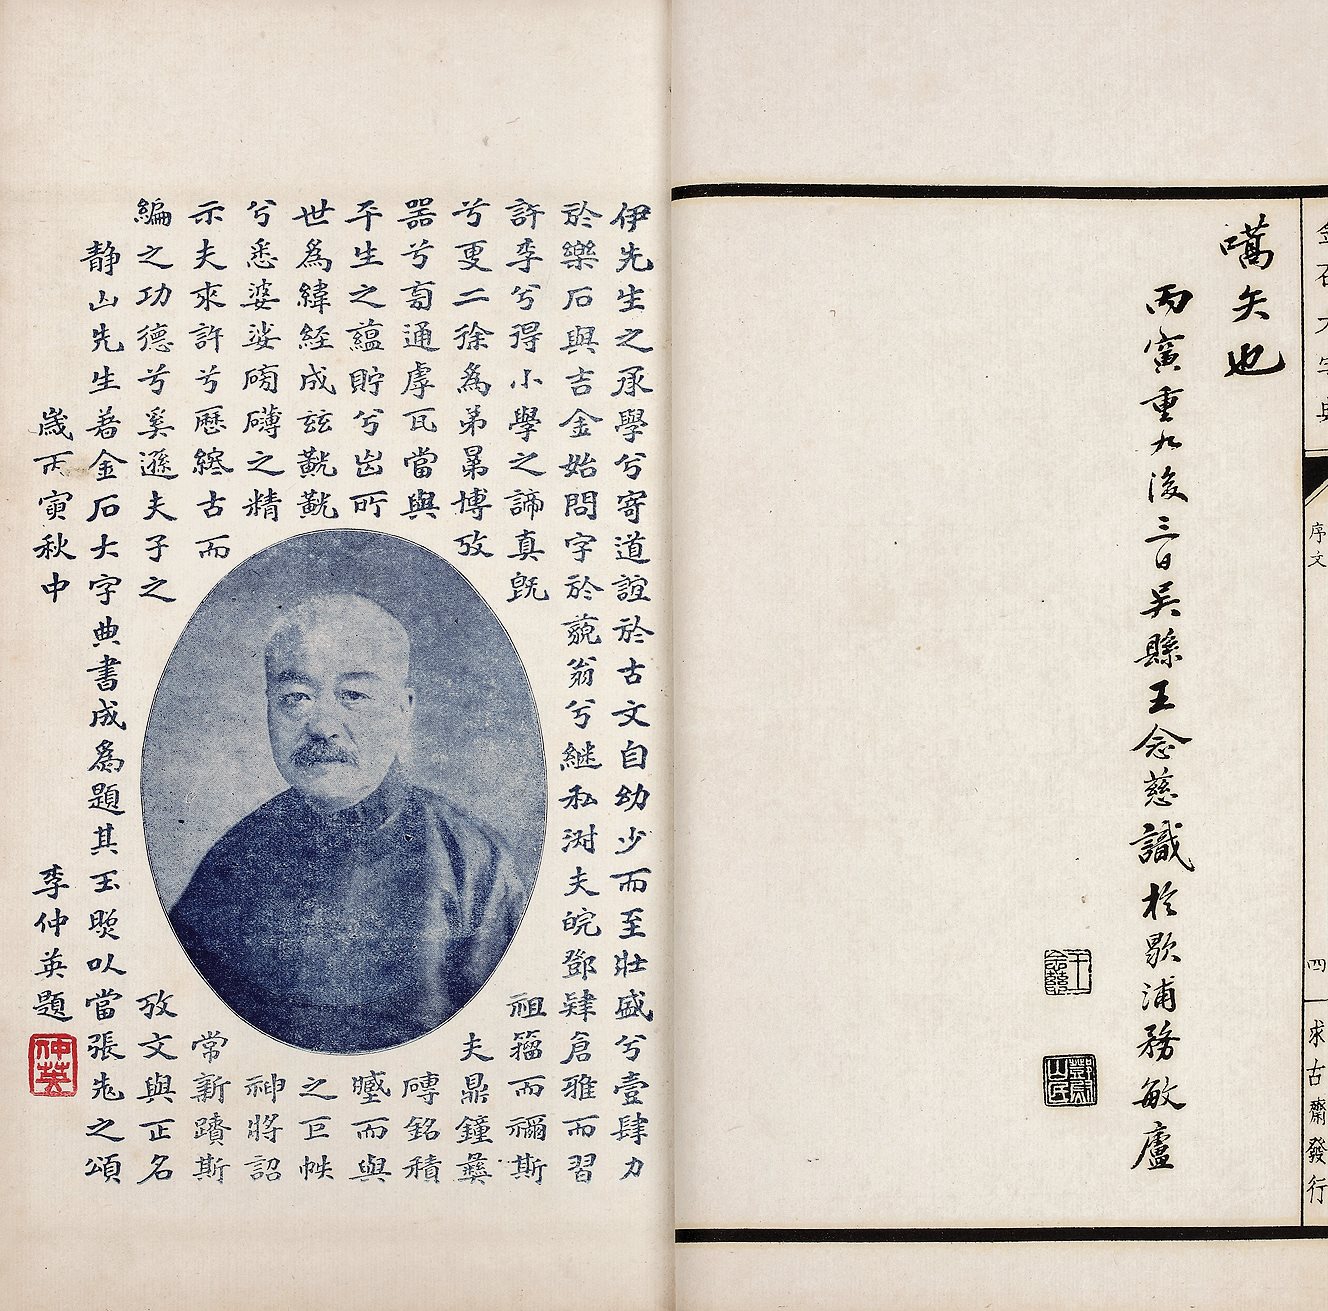 金石大字典 序文 四 求古齋發行
嚆矢也
丙寅重九後三日吳縣王念慈識於歇浦務敏廬
王念慈
伊先生之承學兮寄道誼於古文自幼少而至壯盛兮壹肆力
於樂石與吉金始問字於藐翁兮繼私淑夫皖鄧肄倉雅而習
許李兮得小學之諦真旣祖籀而禰斯
兮更二徐為弟晜博攷夫鼎鐘彝
器兮旁通虖瓦當與磚銘積
平生之蘊貯兮出所而與
世為緯經成玆觥觥之巨帙
兮悉婆娑磅礴之精神將詔
示夫來許兮歷終古而常新躋斯
編之功德兮奚遜夫子之攷文與正名
静山先生著金石大字典書成為題其玉照以當張老之頌
歲丙寅秋中 李仲英題
仲英